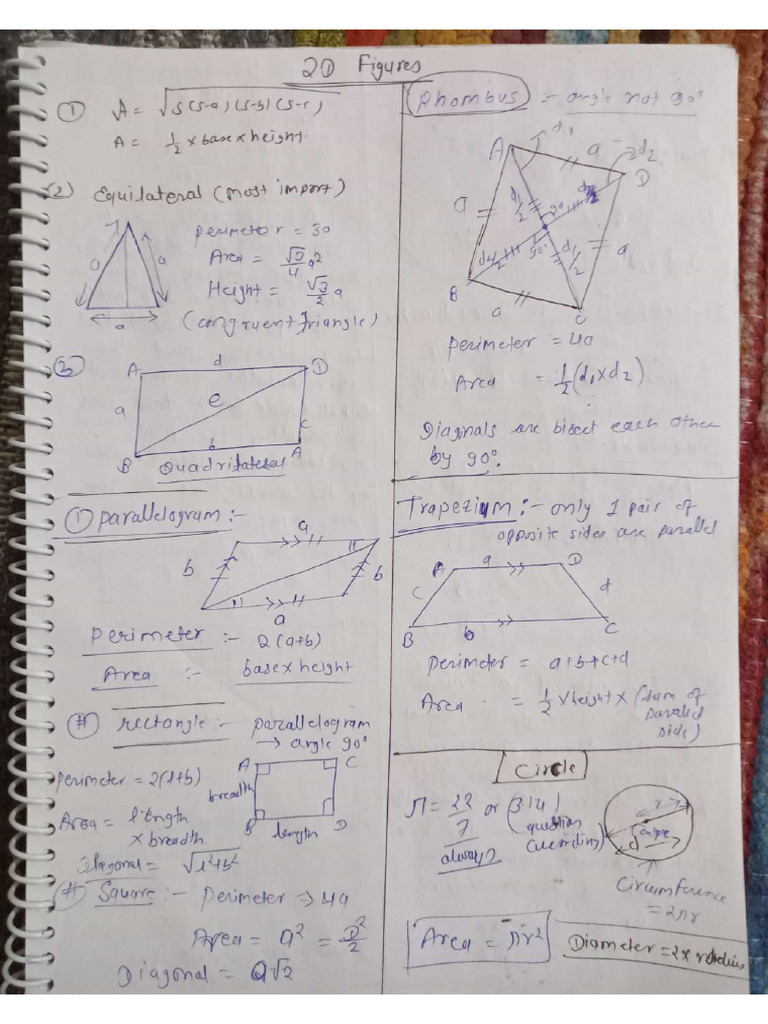 2D Figures
① A = √s(s-a)(s-b)(s-c)
A = 1/2 × base × height.
(2) Equilateral (most import)
a a
a
perimeter = 3a
Area = √3/4 a²
Height = √3/2 a
(congruent triangle)
③
A d D
a e c
B b A
Quadrilateral
① parallelogram :-
a
b b
a
Perimeter :- 2(a+b)
Area :- base × height
(#) rectangle :- parallelogram
→ angle 90°
Perimeter = 2(l+b)
Area = length
× breadth
Diagonal = √l²+b²
A C
breadth
B length D
(#) Square :- Perimeter ⇒ 4a
Area = a² = D²/2
Diagonal = a√2
Rhombus :- angle not 90°
d₁
A a d2
D
a d₁/2
90°
d2/2 90° d₁/2 a
B a C
perimeter = 4a
Area = 1/2 (d₁ × d2)
Diagonals are bisect each other
by 90°.
Trapezium :- only 1 pair of
opposite sides are parallel
A a D
c d
B b C
Perimeter = a+b+c+d
Area = 1/2 × height × (sum of
parallel
side)
Circle
π = 22/7 or (3.14)
always (question
according)
r
d
Circumference
= 2πr
Area = πr²
Diameter = 2 × radius